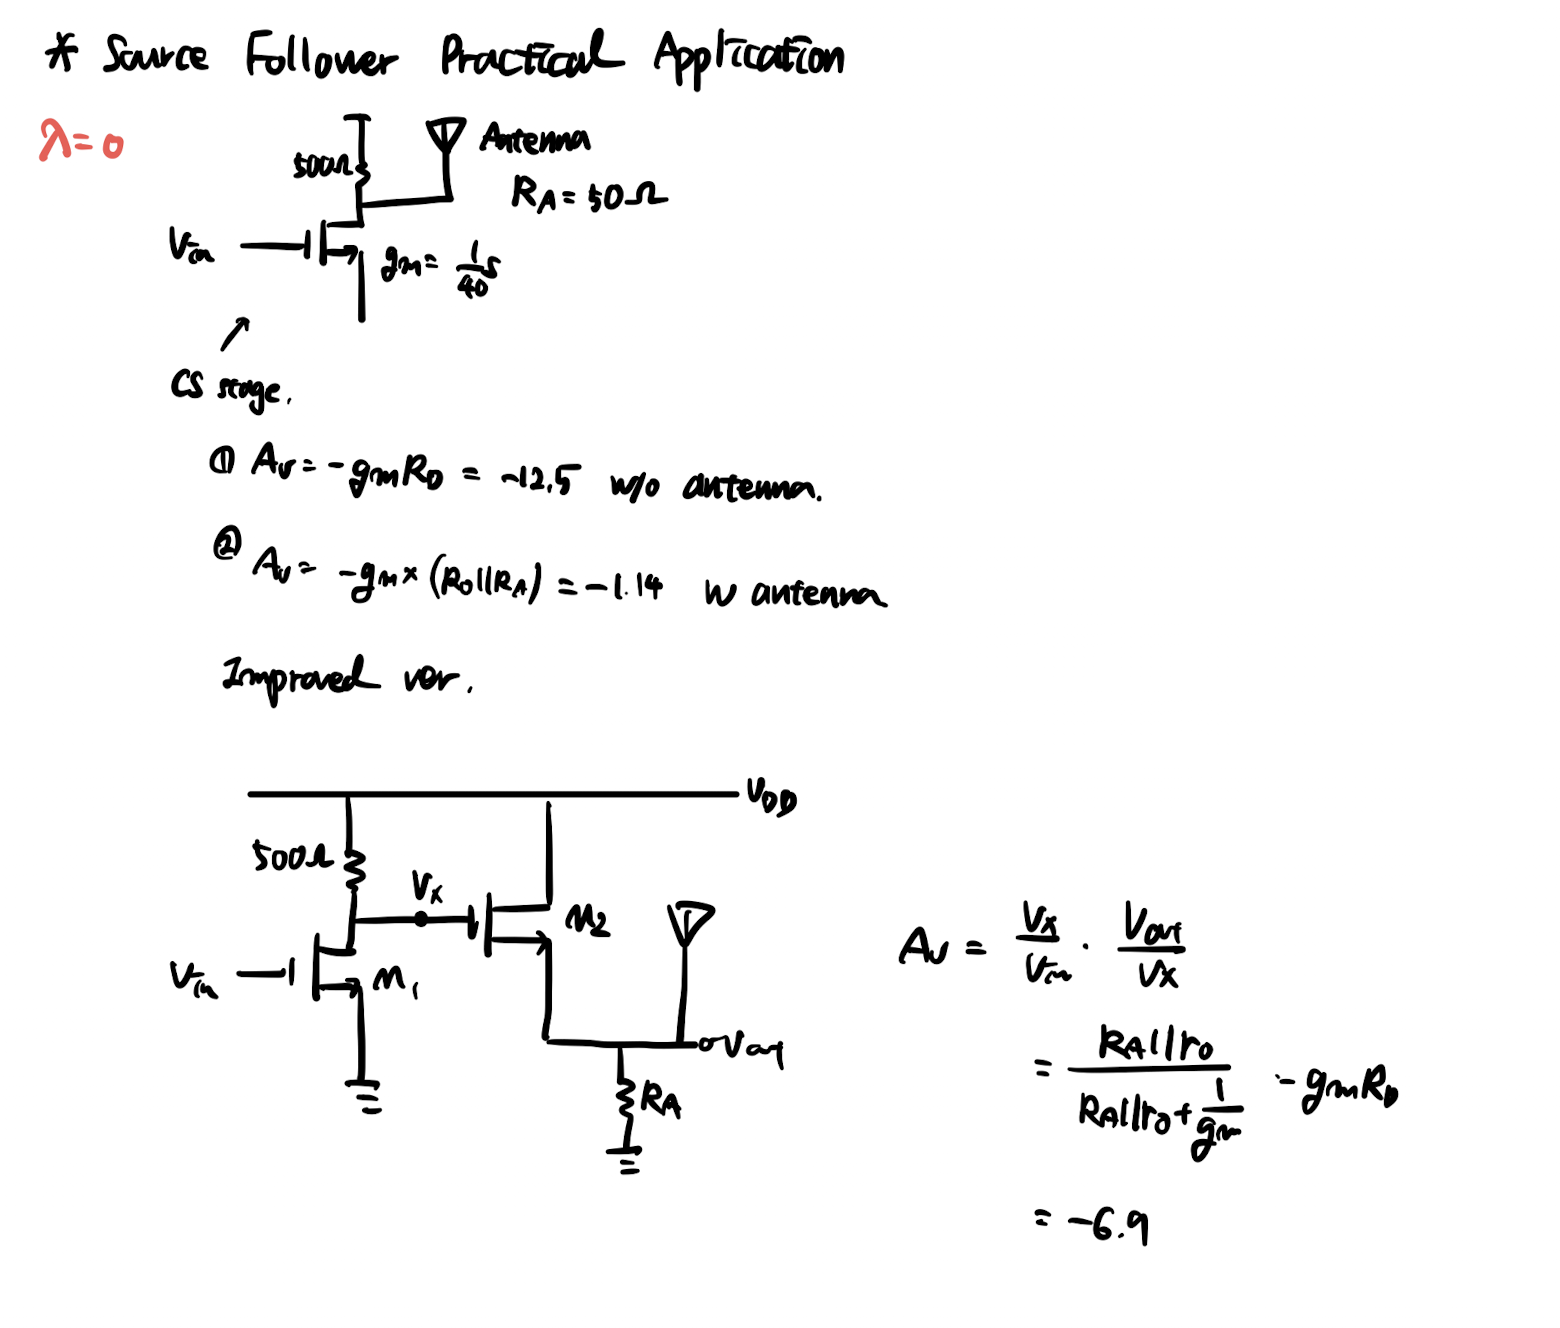 * Source Follower Practical Application
λ=0
500Ω
Antenna
R_A = 50Ω
Vin
gm = 1/40 S
CS stage.
① Av = -gmR_D = -12.5 w/o antenna.
② Av = -gm × (R_D||R_A) = -1.14 w antenna
Improved ver.
V_DD
500Ω
Vx
M2
Vin
M1
Vout
R_A
Av = Vx/Vin · Vout/Vx
= R_A||ro / (R_A||ro + 1/gm) · -gmR_D
= -6.9